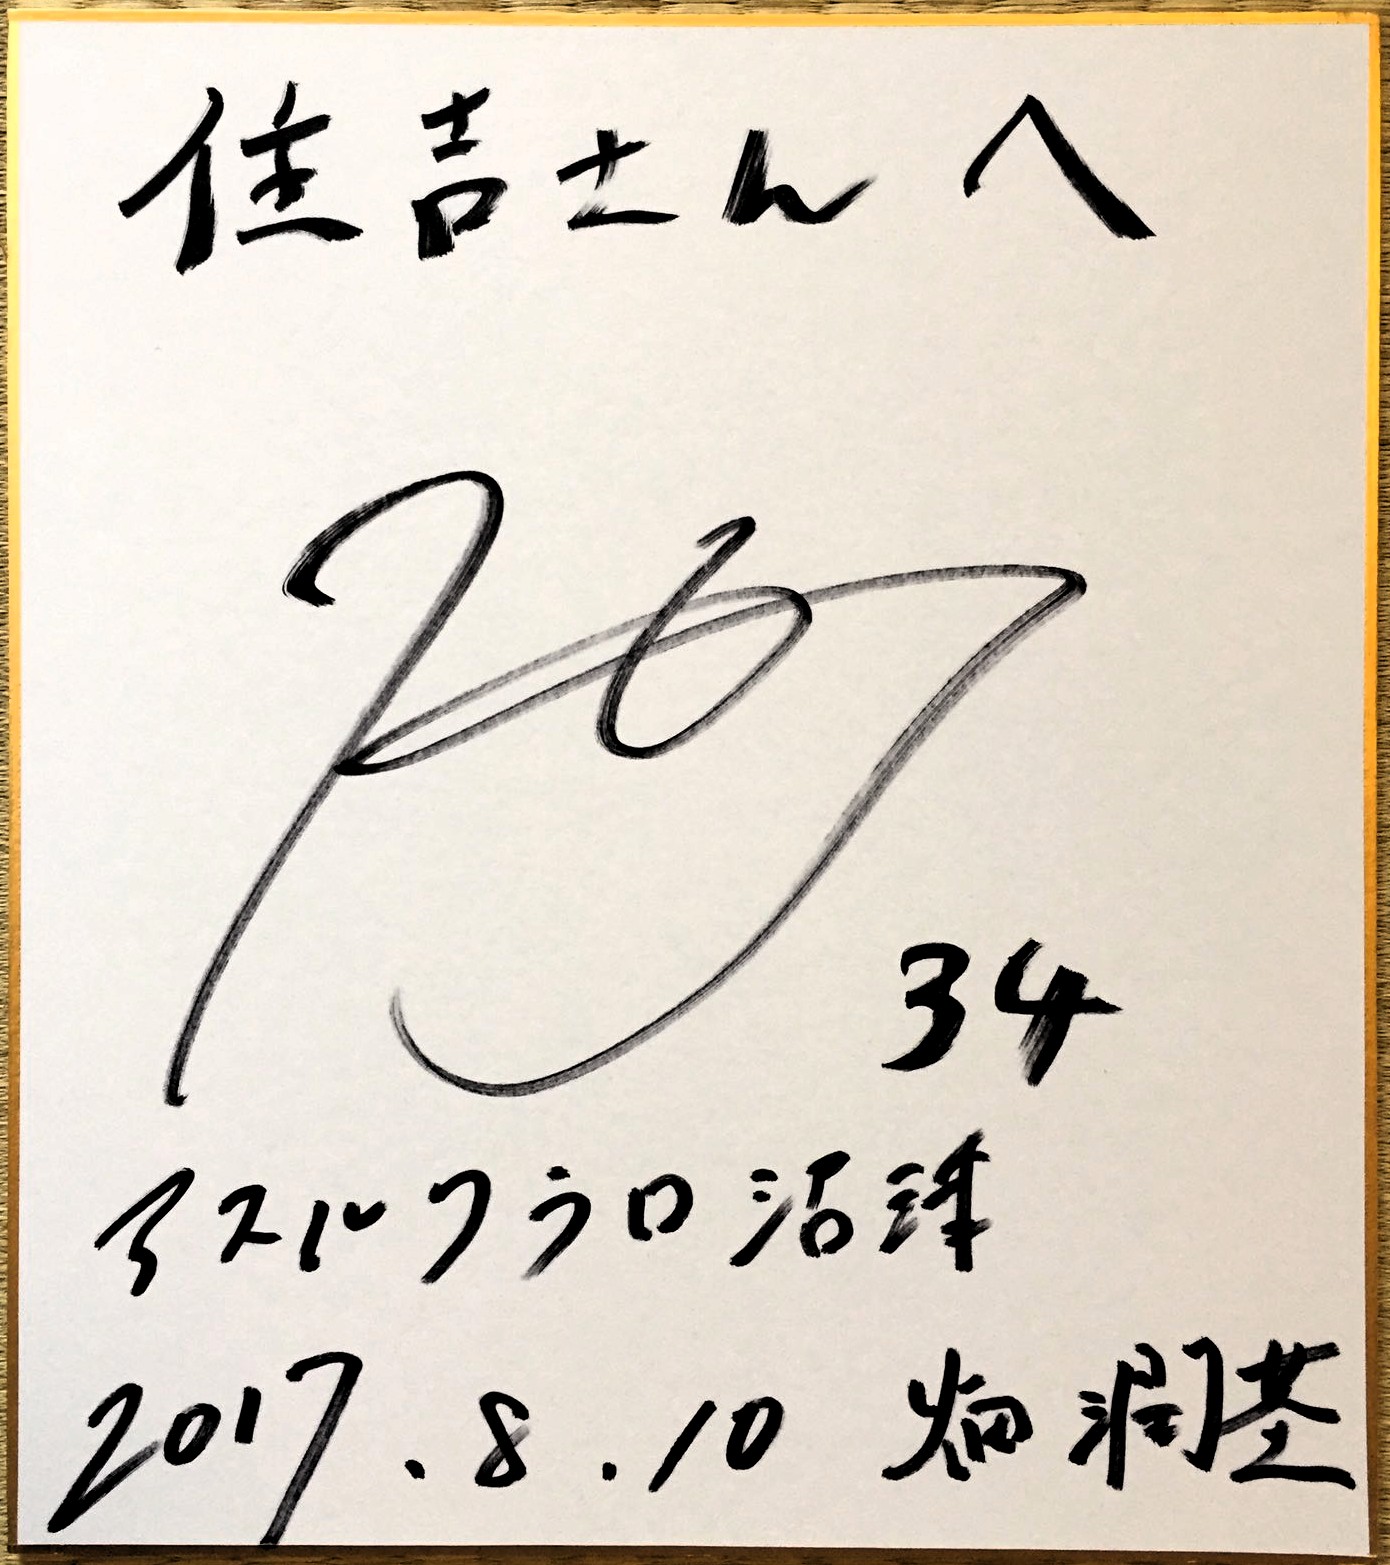 住吉さんへ
34
アスルクラロ沼津
2017.8.10 畑潤基